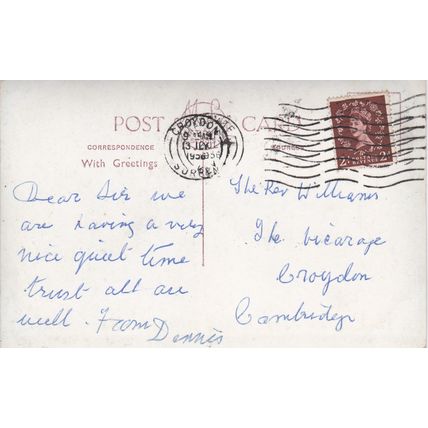 POST CARD
CORRESPONDENCE
With Greetings
CROYDON
SURREY
Dear Sir we
are having a very
nice quiet time
trust all are
well. From Dennis
The Rev Williams
The vicarage
Croydon
Cambridge